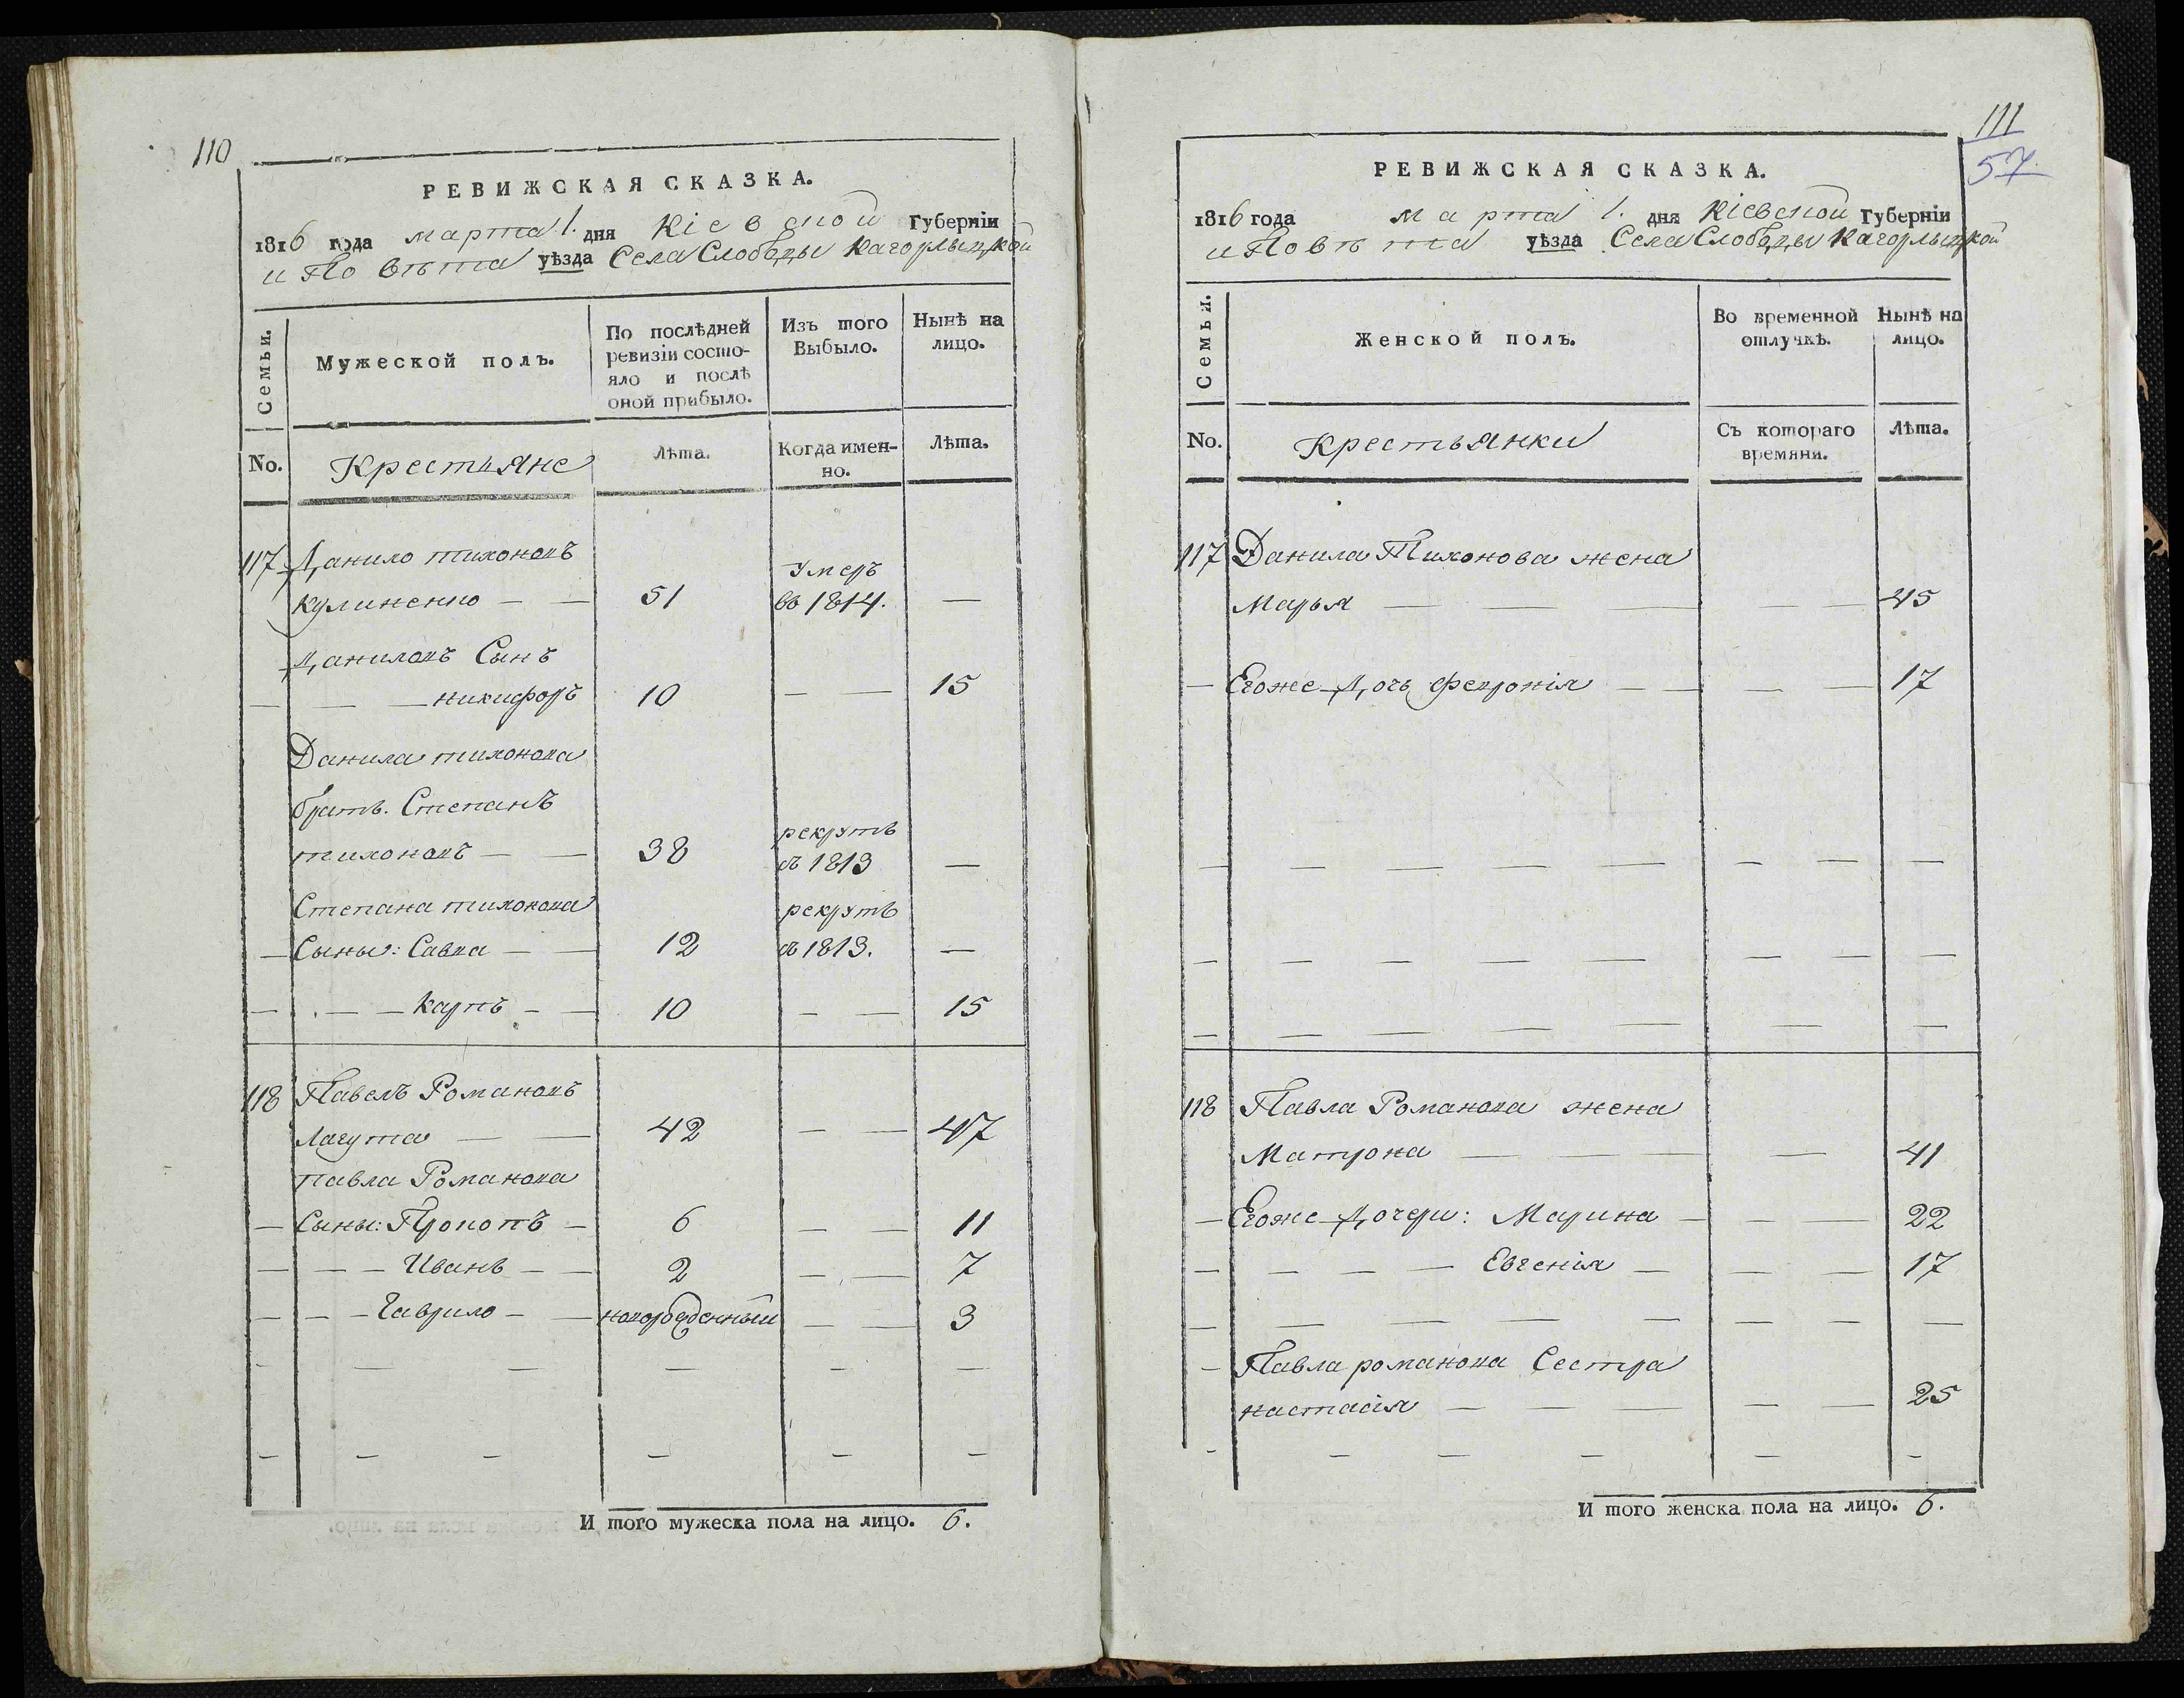 110
РЕВИЖСКАЯ СКАЗКА.
1816 года марта 1. дня Кіевской Губерніи
и Повѣта уѣзда Села Слободы Кагорлыцкой
Семьи.
Мужеской полъ.
По послѣдней ревизіи состояло и послѣ оной прибыло.
Изъ того Выбыло.
Нынѣ на лицо.
No.
Крестьяне
Лѣта.
Когда именно.
Лѣта.
117 Данило тихоновъ
кулиненко — — 51 умеръ во 1814. —
Даниловъ Сынъ
— — — никифоръ 10 — — 15
Данила тихонова
братъ. Степанъ
тихоновъ — — 38 рекрутъ въ 1813 —
Степана тихонова
— Сыны: Савка — — 12 рекрутъ въ 1813. —
— — — карпъ — — 10 — — 15
118 Павелъ Романовъ
Лагута — — 42 — — 47
павла Романова
— Сыны: Прокопъ — 6 — — 11
— — — Иванъ — — 2 — — 7
— — — Гаврило — — новорожденный — — 3
— — — — — —
— — — — — —
И того мужеска пола на лицо. 6.
111
57.
РЕВИЖСКАЯ СКАЗКА.
1816 года марта 1. дня Кіевской Губерніи
и Повѣта уѣзда Села Слободы Кагорлыцкой
Семьи.
Женской полъ.
Во временной отлучкѣ.
Нынѣ на лицо.
No.
Крестьянки
Съ котораго времяни.
Лѣта.
117 Данила Тихонова жена
Марья — — — — — 45
— Егоже Дочь Февронія — — — — 17
— — — — — — — — —
— — — — — — — — —
— — — — — — — —
118 Павла Романова жена
Матрона — — — — 41
— Егоже Дочери: Марина — — — 22
— — — — — Евгенія — — — 17
— — — — — — — — —
— Павла романова Сестра
настасія — — — — — 25
— — — — — —
И того женска пола на лицо. 6.